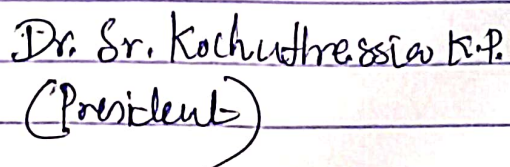 Dr. Sr. Kochuthressia K.P.
(President)